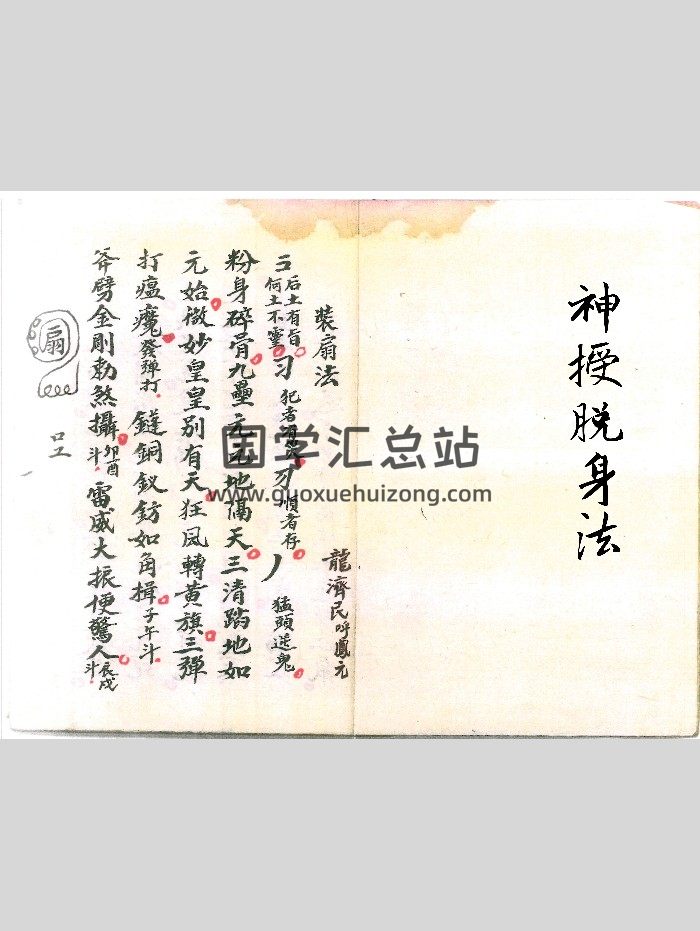 神授脱身法
裝扇法 龍濟民呼鳳元
后土有旨
何土不靈 犯者 順者存 猛頭送鬼
粉身碎骨九壘元元地隔天三清蹈地如
元始微妙皇皇別有天狂風轉黄旗三彈
打瘟魔發彈打鐽銅釵鈁如角揖子午斗
斧劈金剛勅煞攝卯酉斗雷威大振便驚人辰戌斗
扇
国学汇总站
www.guoxuehuizong.com